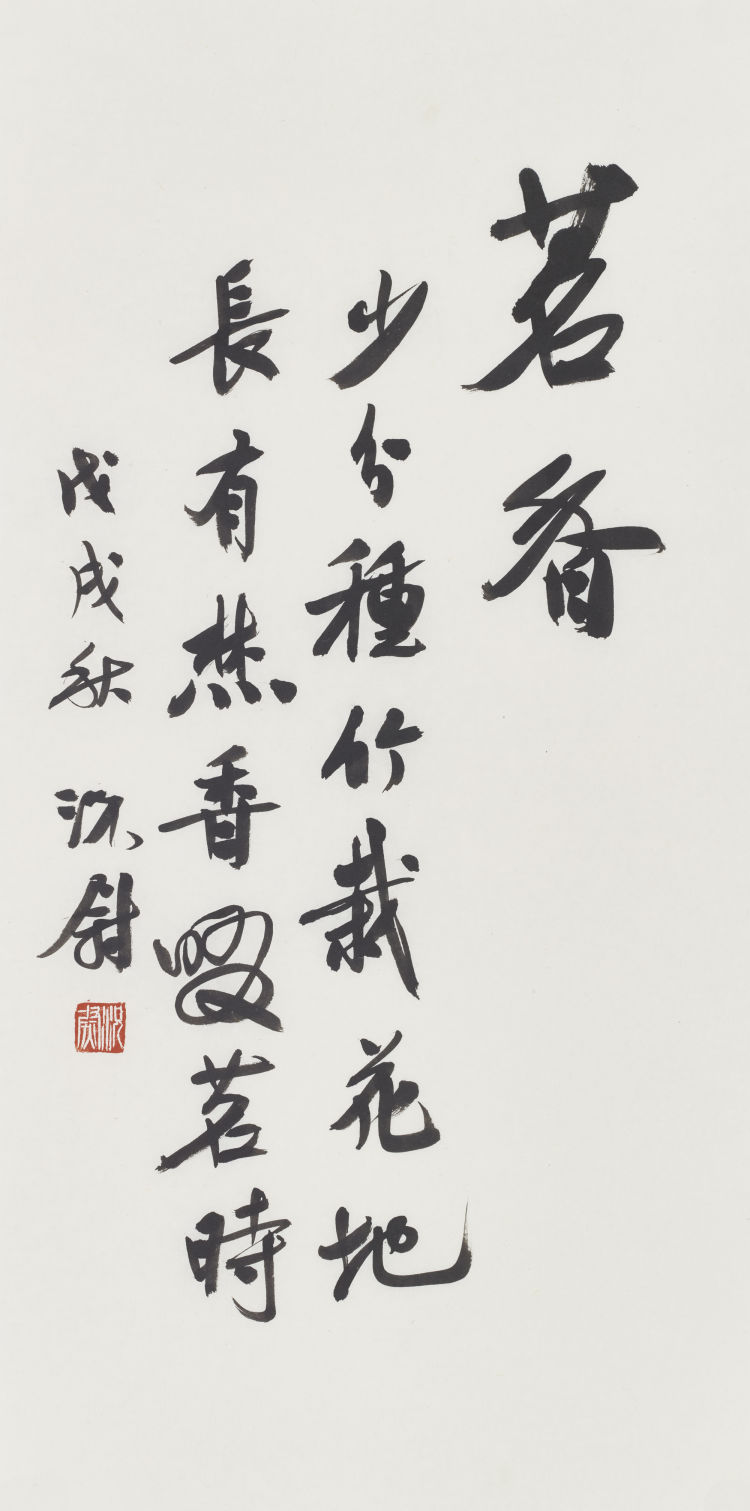 茗香
少分種竹栽花地
長有焚香啜茗時
戊戌秋